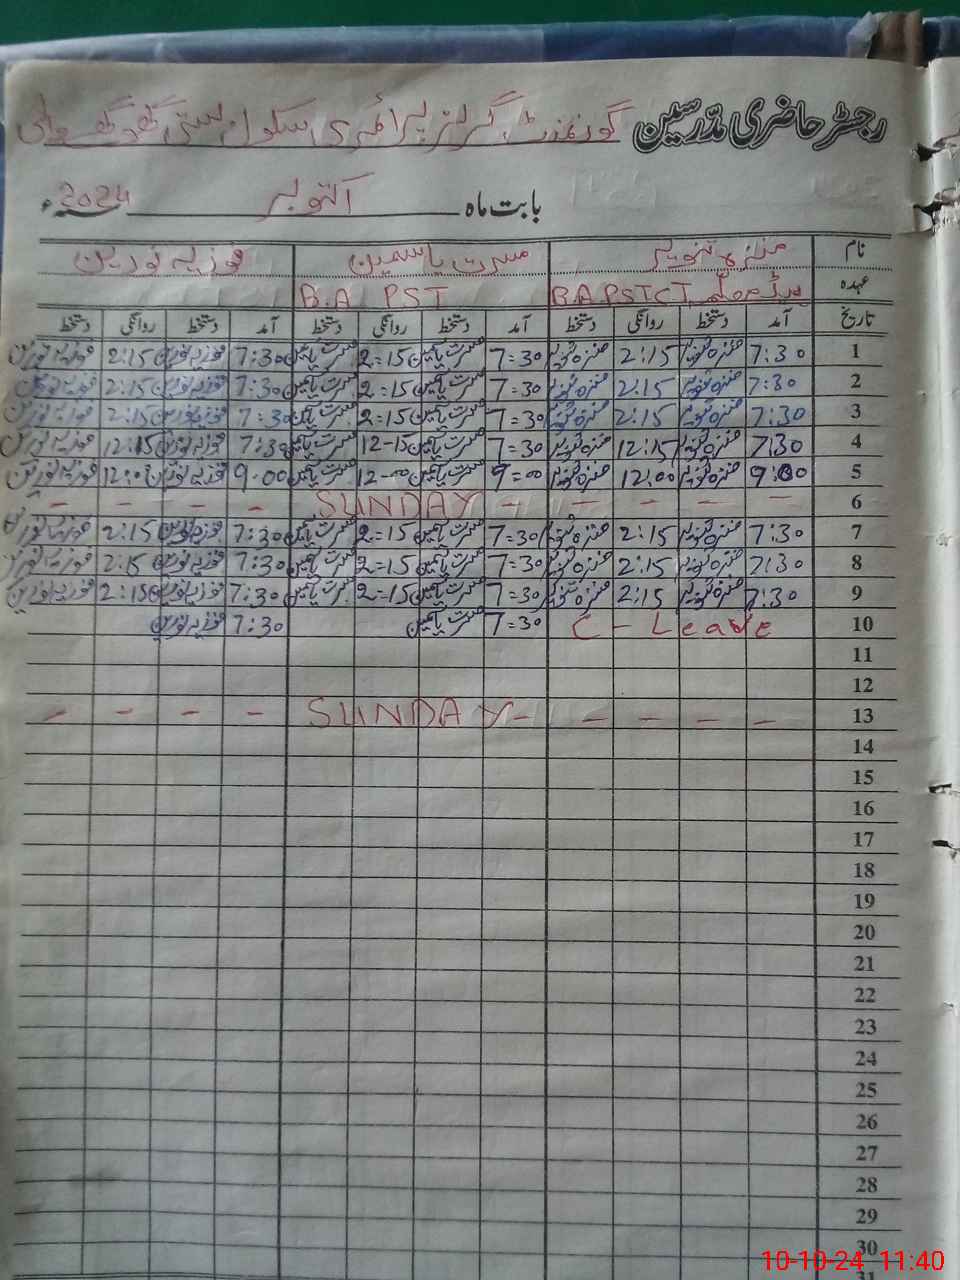 رجسٹر حاضری مدرسین گورنمنٹ گرلز پرائمری سکول بستی
بابت ماہ اکتوبر سنہ 2024ء
نام منزہ تنویر مسرت یاسمین فوزیہ نورین
عہدہ ہیڈ معلمہ B.A PST CT B.A PST
تاریخ آمد دستخط روانگی دستخط آمد دستخط روانگی دستخط آمد دستخط روانگی دستخط
1 7:30 منزہ تنویر 2:15 منزہ تنویر 7=30 مسرت یاسمین 2=15 مسرت یاسمین 7:30 فوزیہ نورین 2:15 فوزیہ نورین
2 7:30 منزہ تنویر 2:15 منزہ تنویر 7=30 مسرت یاسمین 2=15 مسرت یاسمین 7:30 فوزیہ نورین 2:15 فوزیہ نورین
3 7:30 منزہ تنویر 2:15 منزہ تنویر 7=30 مسرت یاسمین 2=15 مسرت یاسمین 7:30 فوزیہ نورین 2:15 فوزیہ نورین
4 7:30 منزہ تنویر 12:15 منزہ تنویر 7=30 مسرت یاسمین 12-15 مسرت یاسمین 7:30 فوزیہ نورین 12:15 فوزیہ نورین
5 9:00 منزہ تنویر 12:00 منزہ تنویر 9=00 مسرت یاسمین 12-00 مسرت یاسمین 9:00 فوزیہ نورین 12:00 فوزیہ نورین
6 - - - - SUNDAY - - - -
7 7:30 منزہ تنویر 2:15 منزہ تنویر 7=30 مسرت یاسمین 2=15 مسرت یاسمین 7:30 فوزیہ نورین 2:15 فوزیہ نورین
8 7:30 منزہ تنویر 2:15 منزہ تنویر 7=30 مسرت یاسمین 2=15 مسرت یاسمین 7:30 فوزیہ نورین 2:15 فوزیہ نورین
9 7:30 منزہ تنویر 2:15 منزہ تنویر 7=30 مسرت یاسمین 2=15 مسرت یاسمین 7:30 فوزیہ نورین 2:15 فوزیہ نورین
10 C - Leave 7=30 مسرت یاسمین 7:30 فوزیہ نورین
11
12
13 - - - - SUNDAY - - - - -
14
15
16
17
18
19
20
21
22
23
24
25
26
27
28
29
30
31
10-10-24 11:40